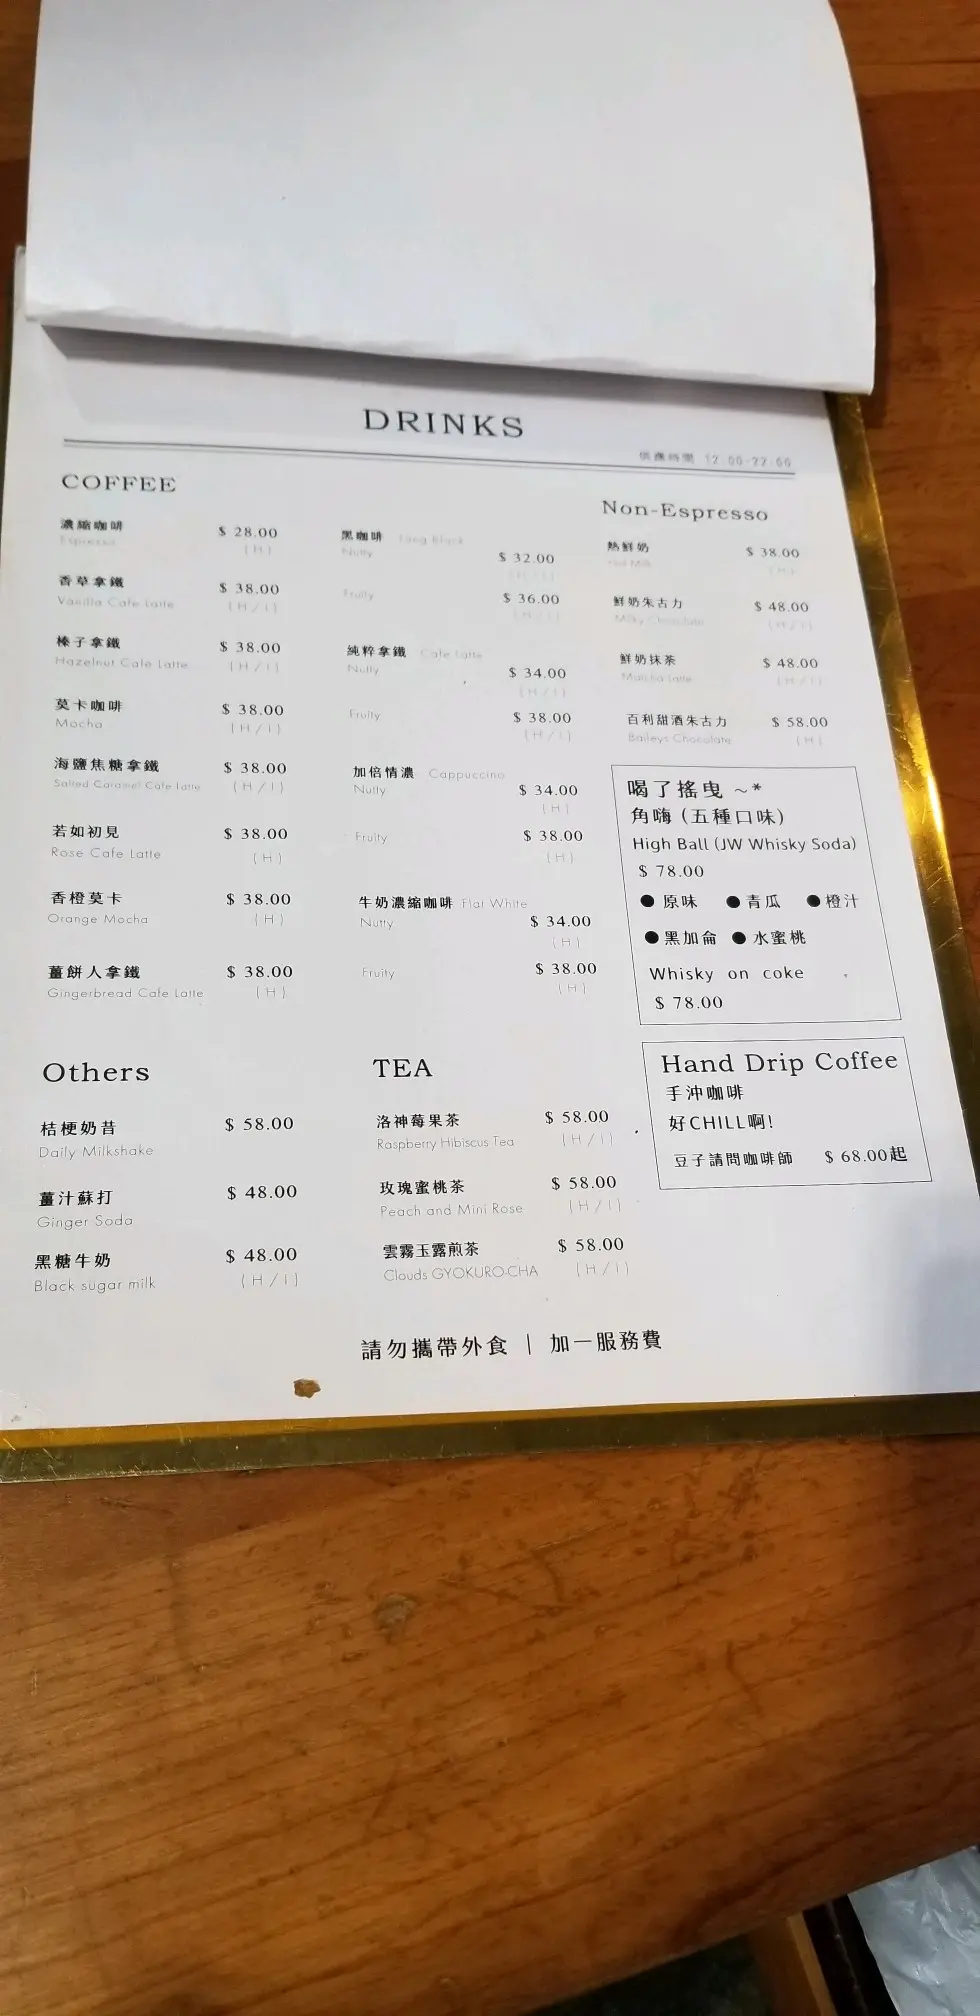 DRINKS
供應時間 12:00-22:00
COFFEE
濃縮咖啡 $ 28.00
Espresso (H)
香草拿鐵 $ 38.00
Vanilla Cafe Latte (H/I)
榛子拿鐵 $ 38.00
Hazelnut Cafe Latte (H/I)
莫卡咖啡 $ 38.00
Mocha (H/I)
海鹽焦糖拿鐵 $ 38.00
Salted Caramel Cafe Latte (H/I)
若如初見 $ 38.00
Rose Cafe Latte (H)
香橙莫卡 $ 38.00
Orange Mocha (H)
薑餅人拿鐵 $ 38.00
Gingerbread Cafe Latte (H)
黑咖啡 Long Black
Nutty $ 32.00
(H/I)
Fruity $ 36.00
(H/I)
純粹拿鐵 Cafe Latte
Nutty $ 34.00
(H/I)
Fruity $ 38.00
(H/I)
加倍情濃 Cappuccino
Nutty $ 34.00
(H)
Fruity $ 38.00
(H)
牛奶濃縮咖啡 Flat White
Nutty $ 34.00
(H)
Fruity $ 38.00
(H)
Non-Espresso
熱鮮奶 $ 38.00
Hot Milk (H)
鮮奶朱古力 $ 48.00
Milky Chocolate (H/I)
鮮奶抹茶 $ 48.00
Matcha Latte (H/I)
百利甜酒朱古力 $ 58.00
Baileys Chocolate (H)
喝了搖曳 ~*
角嗨 (五種口味)
High Ball (JW Whisky Soda)
$ 78.00
● 原味 ● 青瓜 ● 橙汁
● 黑加侖 ● 水蜜桃
Whisky on coke
$ 78.00
Hand Drip Coffee
手沖咖啡
好CHILL啊!
豆子請問咖啡師 $ 68.00起
Others
桔梗奶昔 $ 58.00
Daily Milkshake
薑汁蘇打 $ 48.00
Ginger Soda
黑糖牛奶 $ 48.00
Black sugar milk (H/I)
TEA
洛神莓果茶 $ 58.00
Raspberry Hibiscus Tea (H/I)
玫瑰蜜桃茶 $ 58.00
Peach and Mini Rose (H/I)
雲霧玉露煎茶 $ 58.00
Clouds GYOKURO-CHA (H/I)
請勿攜帶外食 | 加一服務費